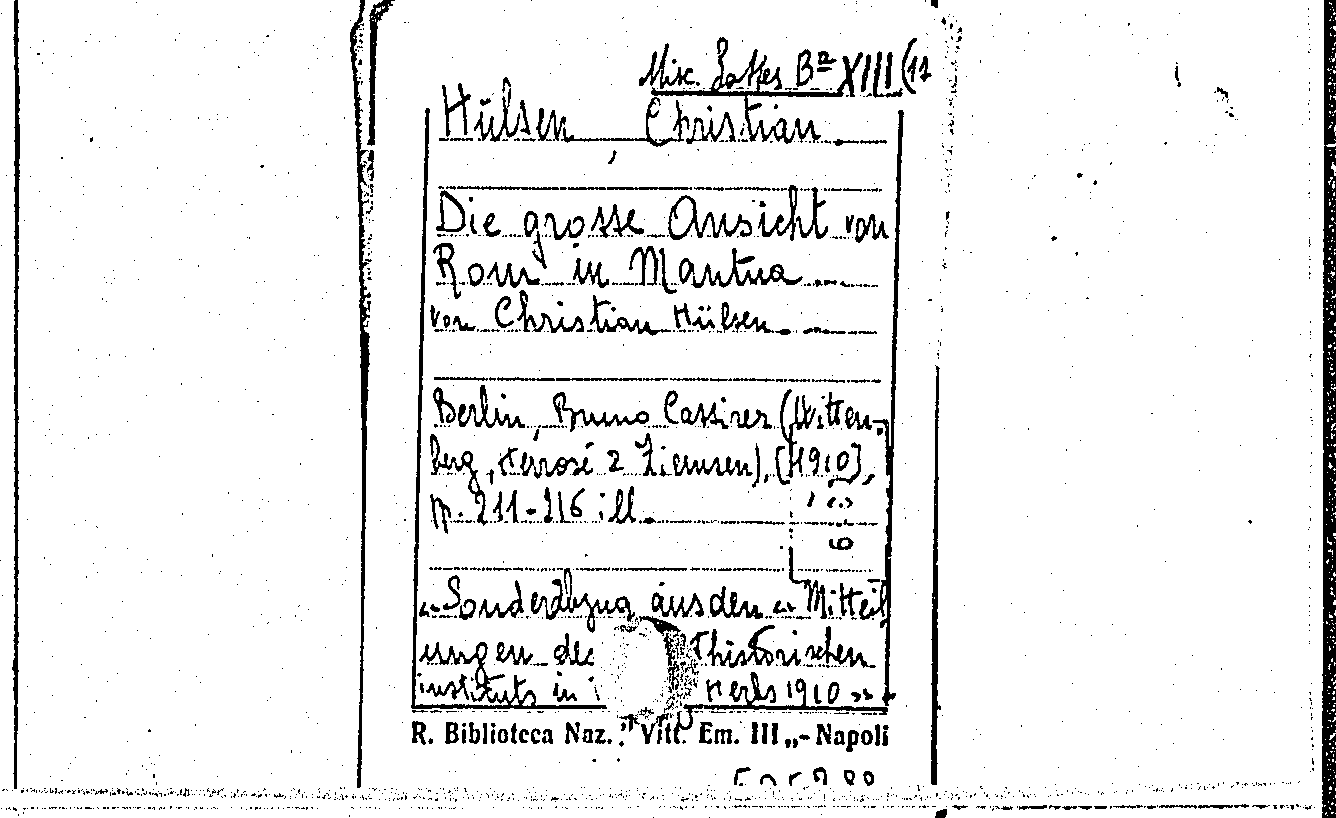 Misc. Lattes Bª XIII (11
Hülsen, Christian.
Die grosse Ansicht von
Rom in Mantua
von Christian Hülsen.
Berlin, Bruno Cassirer (Witten-
berg, Herrosé & Ziemsen), [1910],
pp. 211-216 ill.
« Sonderabzug aus den « Mitteil
ungen des thistorischen
instituts in 1910 » »
R. Biblioteca Naz. " Vitt. Em. III „ - Napoli